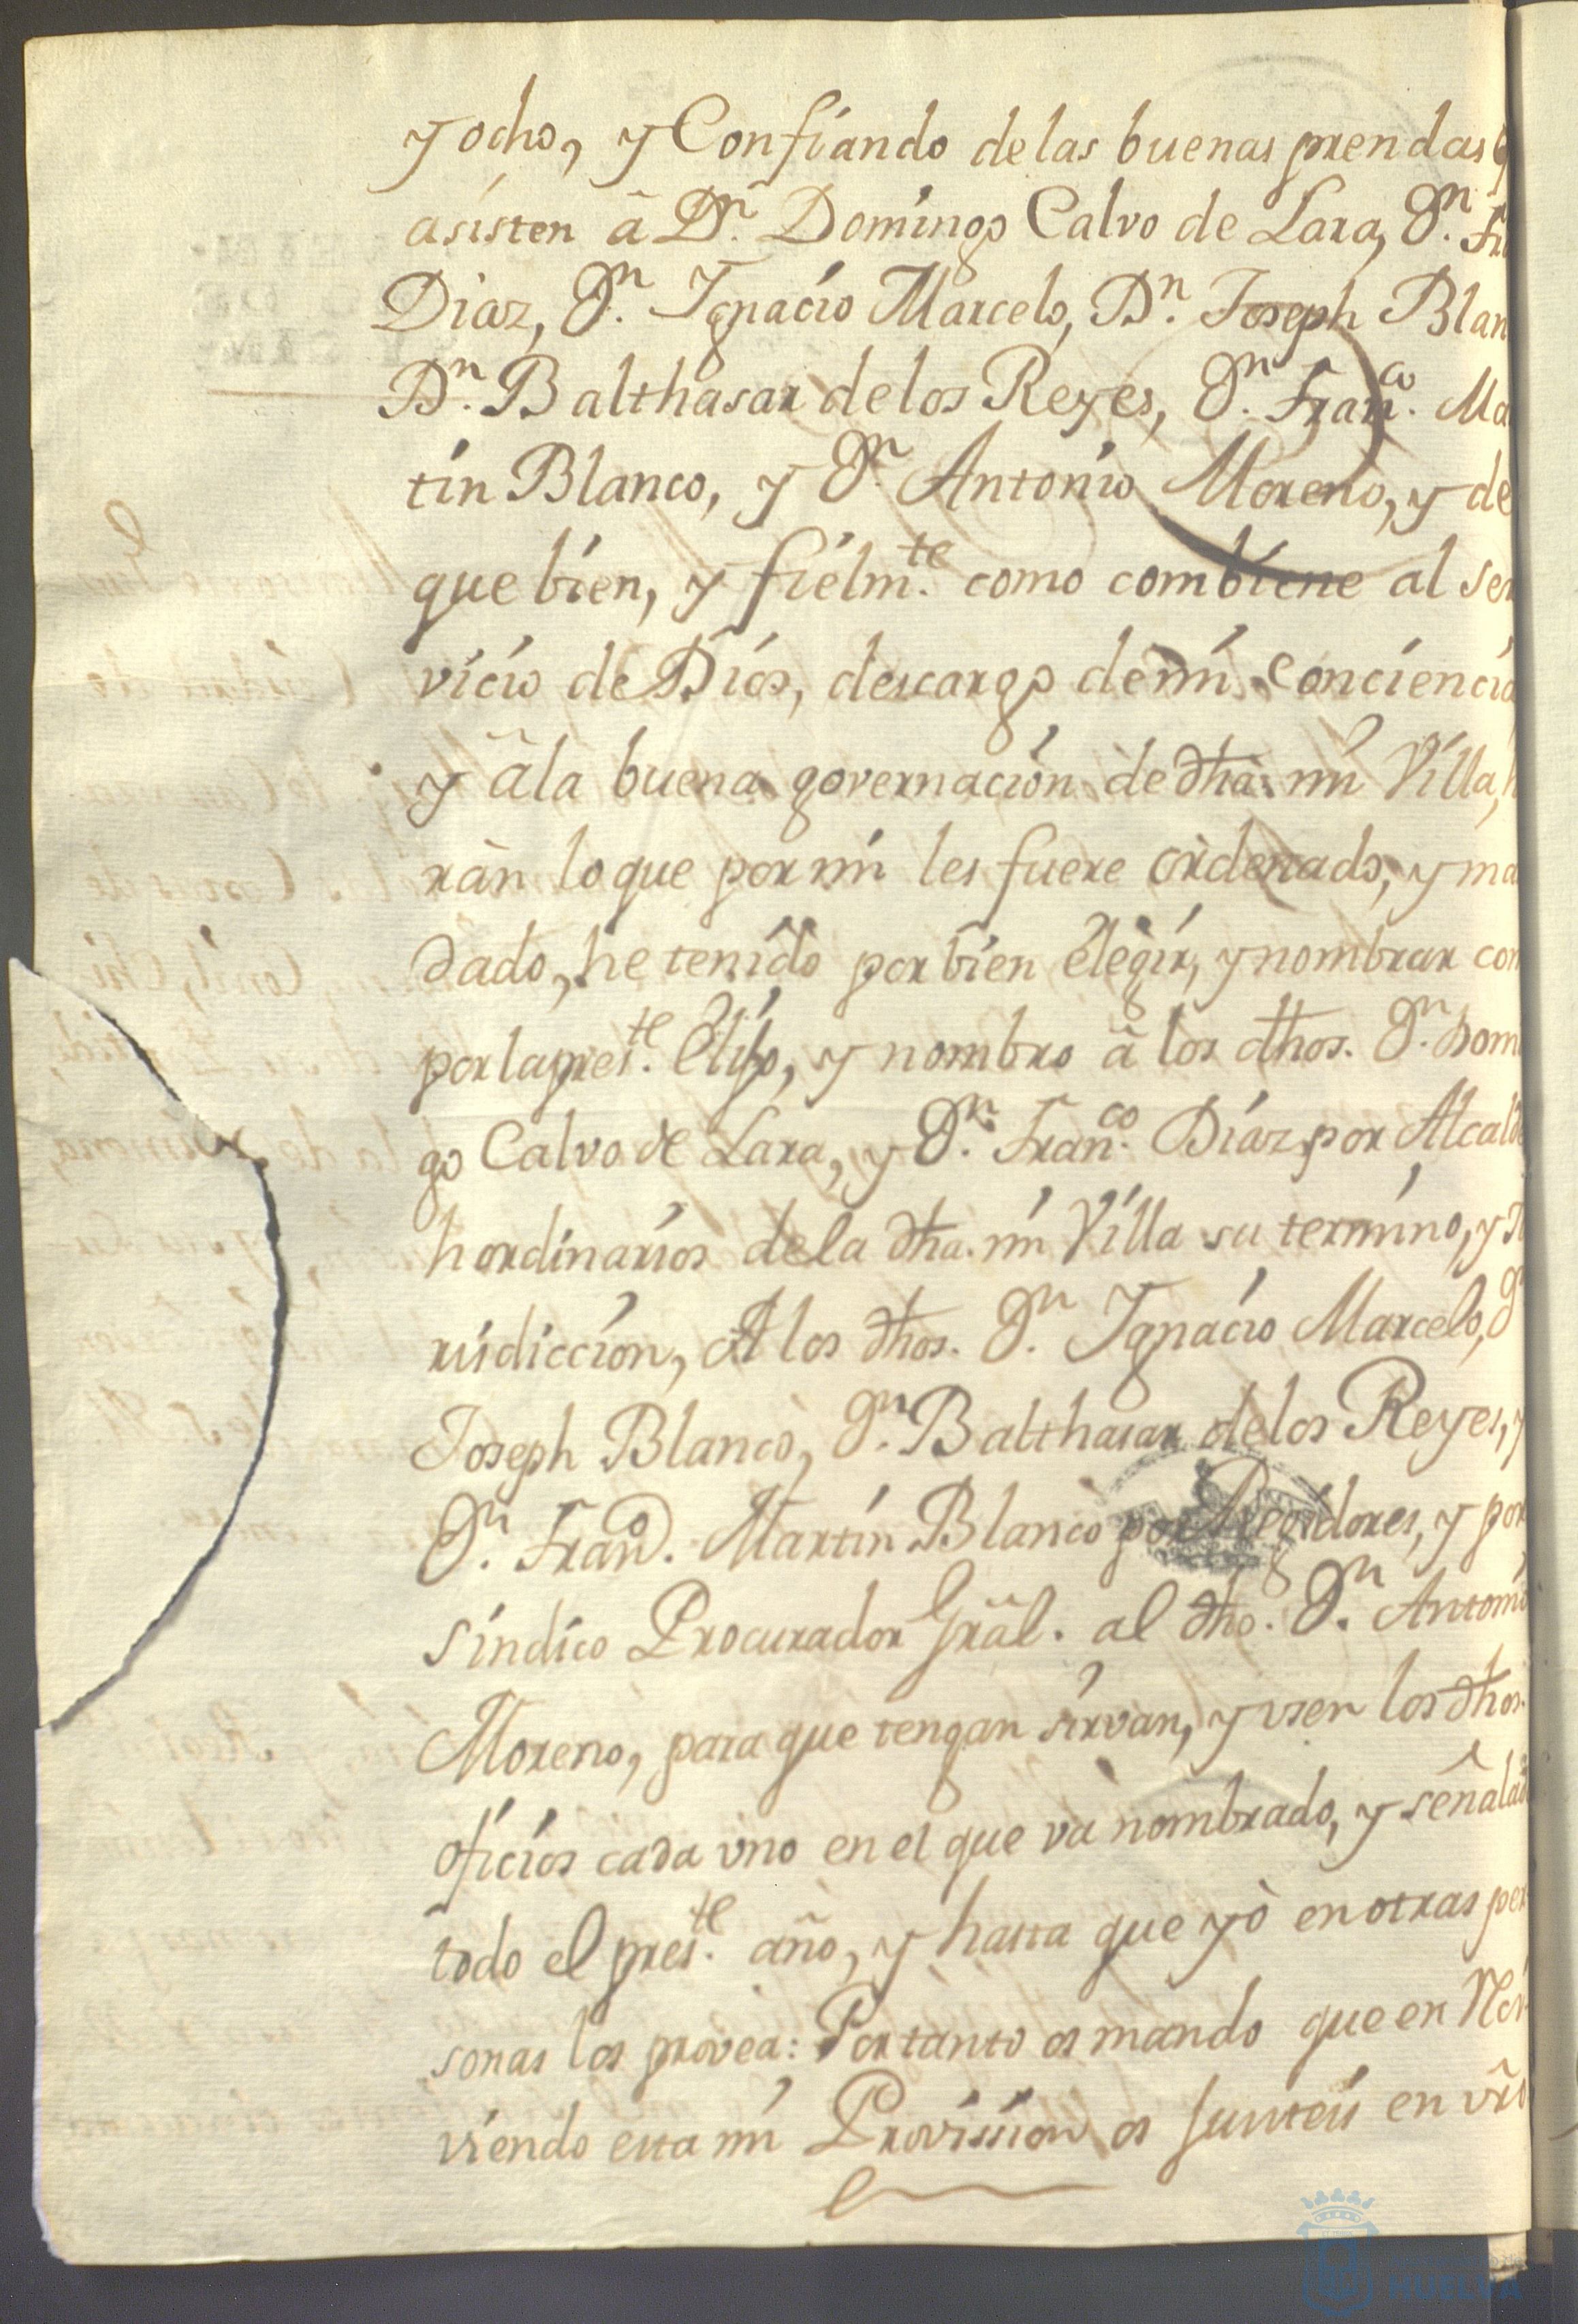 y ocho, y Confiando de las buenas prendas q
asisten â Dn. Domingo Calvo de Lara, Dn. Fr
Diaz, Dn. Ignacio Marcelo, Dn. Joseph Blan
Dn. Balthasar de los Reyes, Dn. Franco. Ma
tin Blanco, y Dn. Antonio Moreno, y de
que bien, y fielmte. como combiene al ser
vicio de Dios, descargo de mi conciencia
y âla buena governacion de dha. mi Villa, h
ràn lo que por mi les fuere ordenado, y ma
dado, he tenido por bien elegir, y nombrar com
por la preste. Elijo, y nombro â los dhos. Dn. Domi
go Calvo de Lara, y Dn. Franco. Diaz por Alcalde
hordinarios de la dha. mi Villa su termino, y Ju
risdiccion, A los dhos. Dn. Ignacio Marcelo, Dn
Joseph Blanco, Dn. Balthasar de los Reyes, y
Dn. Franco. Martin Blanco por Regidores, y por
sindico Procurador Grâl. al dho. Dn. Antonio
Moreno, para que tengan sirvan, y vsen los dhos.
oficios cada vno en el que và nombrado, y señalado
todo el preste. año, y hasta que yò en otras per
sonas los provea: Por tanto os mando que en Re
viendo esta mi Provission os Junteis en vro
HUELVA